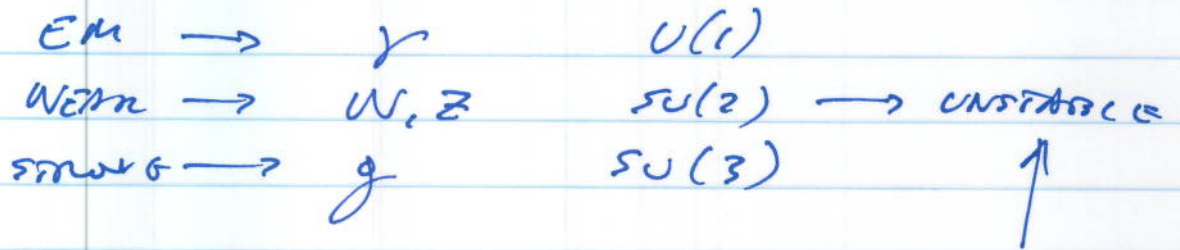 EM → γ U(1)
WEAK → W, Z SU(2) → UNSTABLE
STRONG → g SU(3) ↑